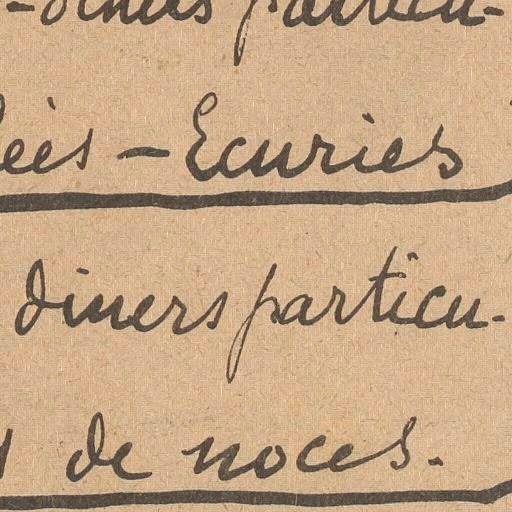 -diners particu-
lées - Ecuries
diners particu-
s de noces.